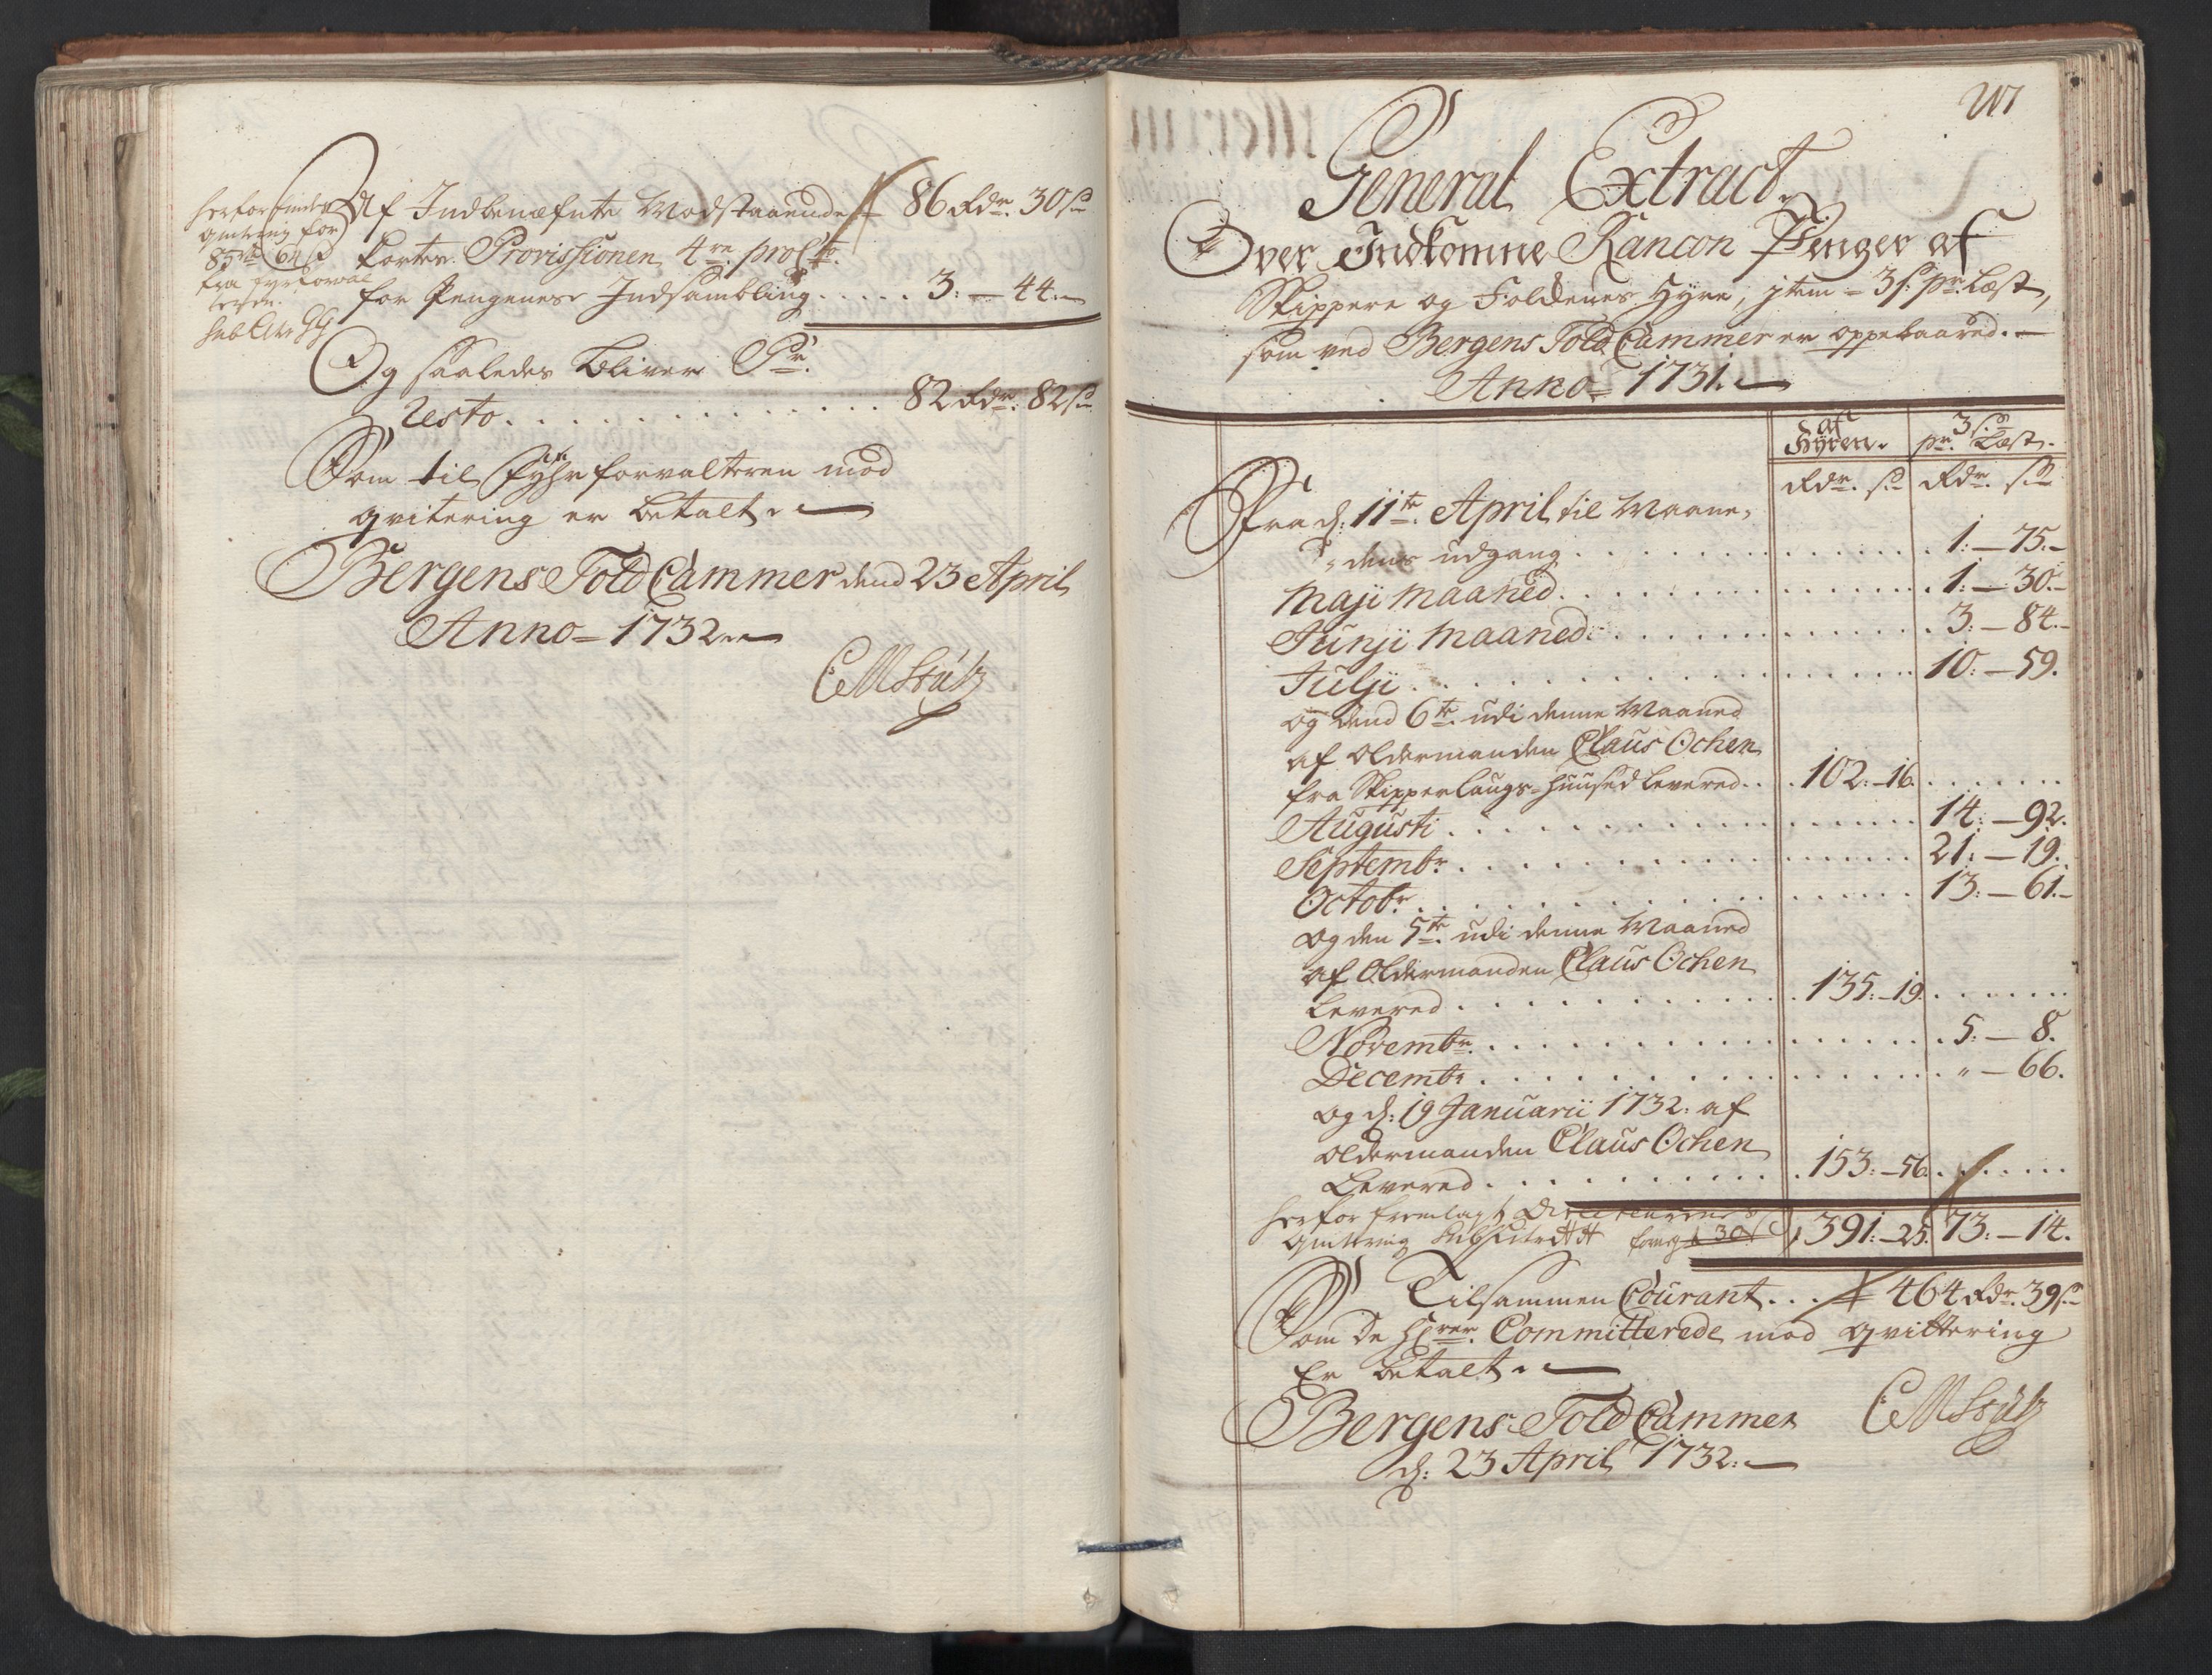 herfor findes
qvittering for
85 rd 64 s
fra fyrforval
teren.
sub Litr: GG
Af Indbenæfnte Modstaaende 86 Rdr. 30 s
korter Provissionen 4re proCto.
for Pengenes Indsambling ..... 3: — 44.
Og saaledes bliver Pr.
Resto ............... 82 Rdr: 82 s
Som til Fyhrforvalteren mod
qvitering er betalt.
Bergens Told Cammer dend 23 April
Anno = 1732
CMStúb
217
General Extract.
Over Indkomne Rancon Penger af
Skippere og Foldenes Hyre, jtem = 3 s. pr. Læst,
som ved Bergens Told Cammer er oppebaared.
Anno = 1731.
af Hyren. 3 s. pr. Læst.
Rdr. s. Rdr. s.
Fra d: 11te. April til Maane,
dens udgang ............. 1: — 75.
Maji Maaned ............. 1: — 30.
Junji Maaned ............. 3: — 84.
Julji ............. 10: — 59.
og dend 6te. udi denne Maaned
af Oldermanden Claus Ochen
fra Skipperlaugs-Huused Levered .. 102: — 16 .......
Augusti ............. 14: — 92.
Septembr. ............. 21: — 19.
Octobr. ............. 13: — 61.
og den 5te. udi denne Maaned
af Oldermanden Claus Ochen
Levered ............. 135: — 19 .......
Novembr. ............. 5: — 8.
Decembr ............. " — 66.
og d: 19 Januarii 1732: af
Oldermanden Claus Ochen
Levered ............. 153: — 56 .......
herfor fremlagt Directeurernes
qvittering sub Litr HH 391: — 25. 73: — 14.
Tilsammen Courant ... 464 Rdr. 39 s
Som de Hrrer. Committerede mod qvittering
Er betalt.
Bergens Told Cammer
CMStúb
d: 23 April 1732.